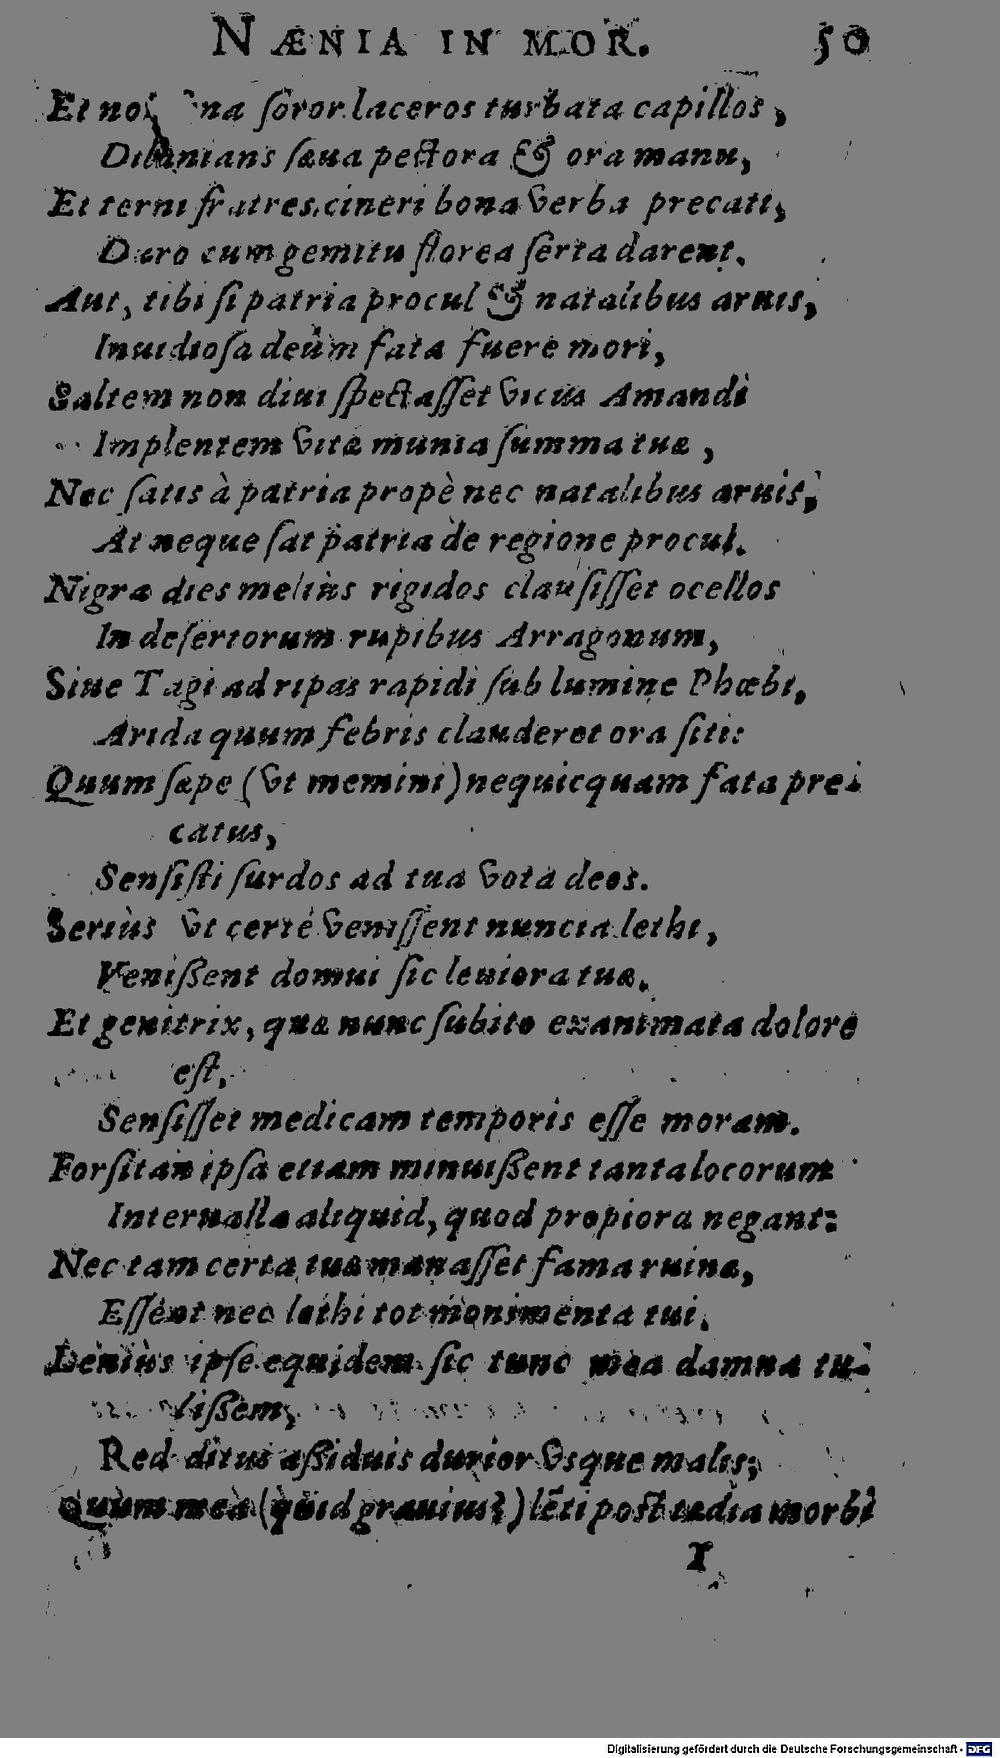 NÆNIA IN MOR. 50
Et ſoror laceros turbata capillos,
Dilanians ſæua pectora & ora manu,
Et terni fratres cineri bona verba precati,
Duro cum gemitu florea ſerta darent.
Aut, tibi ſi patria procul & natalibus aruis,
Inuidioſa deûm fata fuere mori,
Saltem non diui ſpectaſſet vicus Amandi
Implentem vitæ munia ſumma tuæ,
Nec ſatis à patria propè nec natalibus aruis,
At neque ſat patria de regione procul.
Nigra dies meliùs rigidos clauſiſſet ocellos
In deſertorum rupibus Arragonum,
Siue Tagi ad ripas rapidi ſub lumine Phœbi,
Arida quum febris clauderet ora ſiti:
Quum ſæpe (vt memini) nequicquam fata pre-
catus,
Senſiſti ſurdos ad tua vota deos.
Seriùs vt certé veniſſent nuncia lethi,
Venißent domui ſic leuiora tuæ.
Et genitrix, quæ nunc ſubito exanimata dolore
eſt,
Senſiſſet medicam temporis eſſe moram.
Forſitan ipſa etiam minuißent tanta locorum
Interualla aliquid, quod propiora negant:
Nec tam certa tuæ manaſſet fama ruinæ,
Eſſent nec lethi tot monimenta tui.
Leniùs ipſe equidem ſic tunc mea damna tu-
lißem,
Redditus aßiduis durior vsque malis;
Quùm mea (quid grauius?) lēti poſt tædia morbi
I
Digitalisierung gefördert durch die Deutsche Forschungsgemeinschaft - DFG